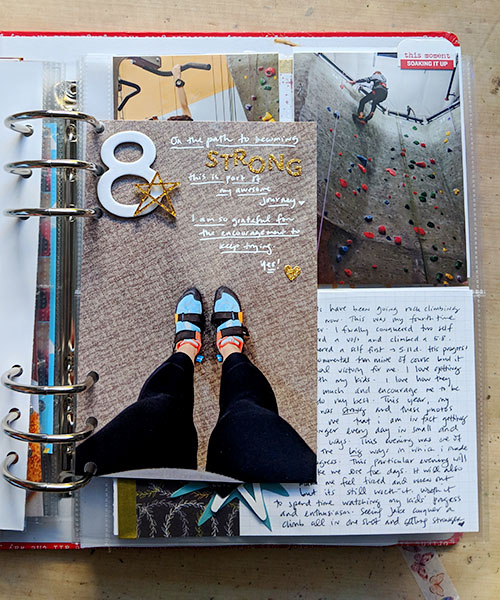 this moment
SOAKING IT UP
8
On the path to becoming
STRONG
this is part of
my awesome
journey
I am so grateful for
the encouragement to
keep trying
yes!
have been going rock climbing
now. This was my fourth time
I finally conquered two self
and climbed a 5.8
a self first - 5.11d. His progress
mine of course but it
victory for me. I love spotting
my kids. I love how they
much and encourage me to be
do my best. This year, my
was strong and these photos
me that I am in fact getting
every day in small and
ways. This evening was one of
the big ways in which I made
progress. This particular evening will
me sore for days. It will also
me feel tired and worn out
but its still worth it. Worth it
to spend time watching my kids' progress
and enthusiasm. Seeing Jake conquer a
climb all in one shot and getting stronger